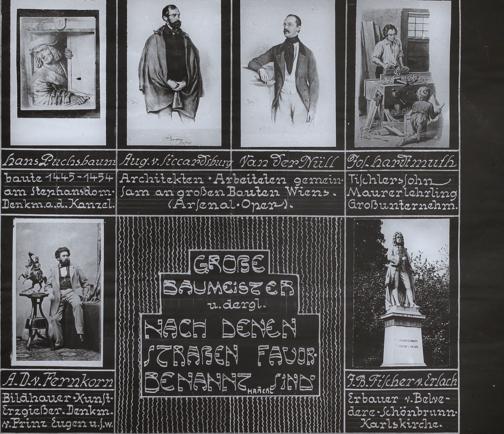 Hans Puchsbaum
baute 1445-1454
am Stephansdom.
Denkm. a. d. Kanzel.
Aug. v. Siccardsburg Van der Nüll
Architekten · Arbeiteten gemein-
sam an großen Bauten Wiens.
(Arsenal · Oper).
Jos. Hardtmuth
Tischlersohn
Maurerlehrling
Großunternehm.
A. D. v. Fernkorn
Bildhauer · Kunst-
Erzgießer. Denkm.
v. Prinz Eugen u.s.w.
GROßE
BAUMEISTER
u. dergl.
NACH DENEN
STRAßEN FAVOR-
BENANNT SIND
J. B. Fischer v. Erlach
Erbauer v. Belve-
dere · Schönbrunn
Karlskirche.